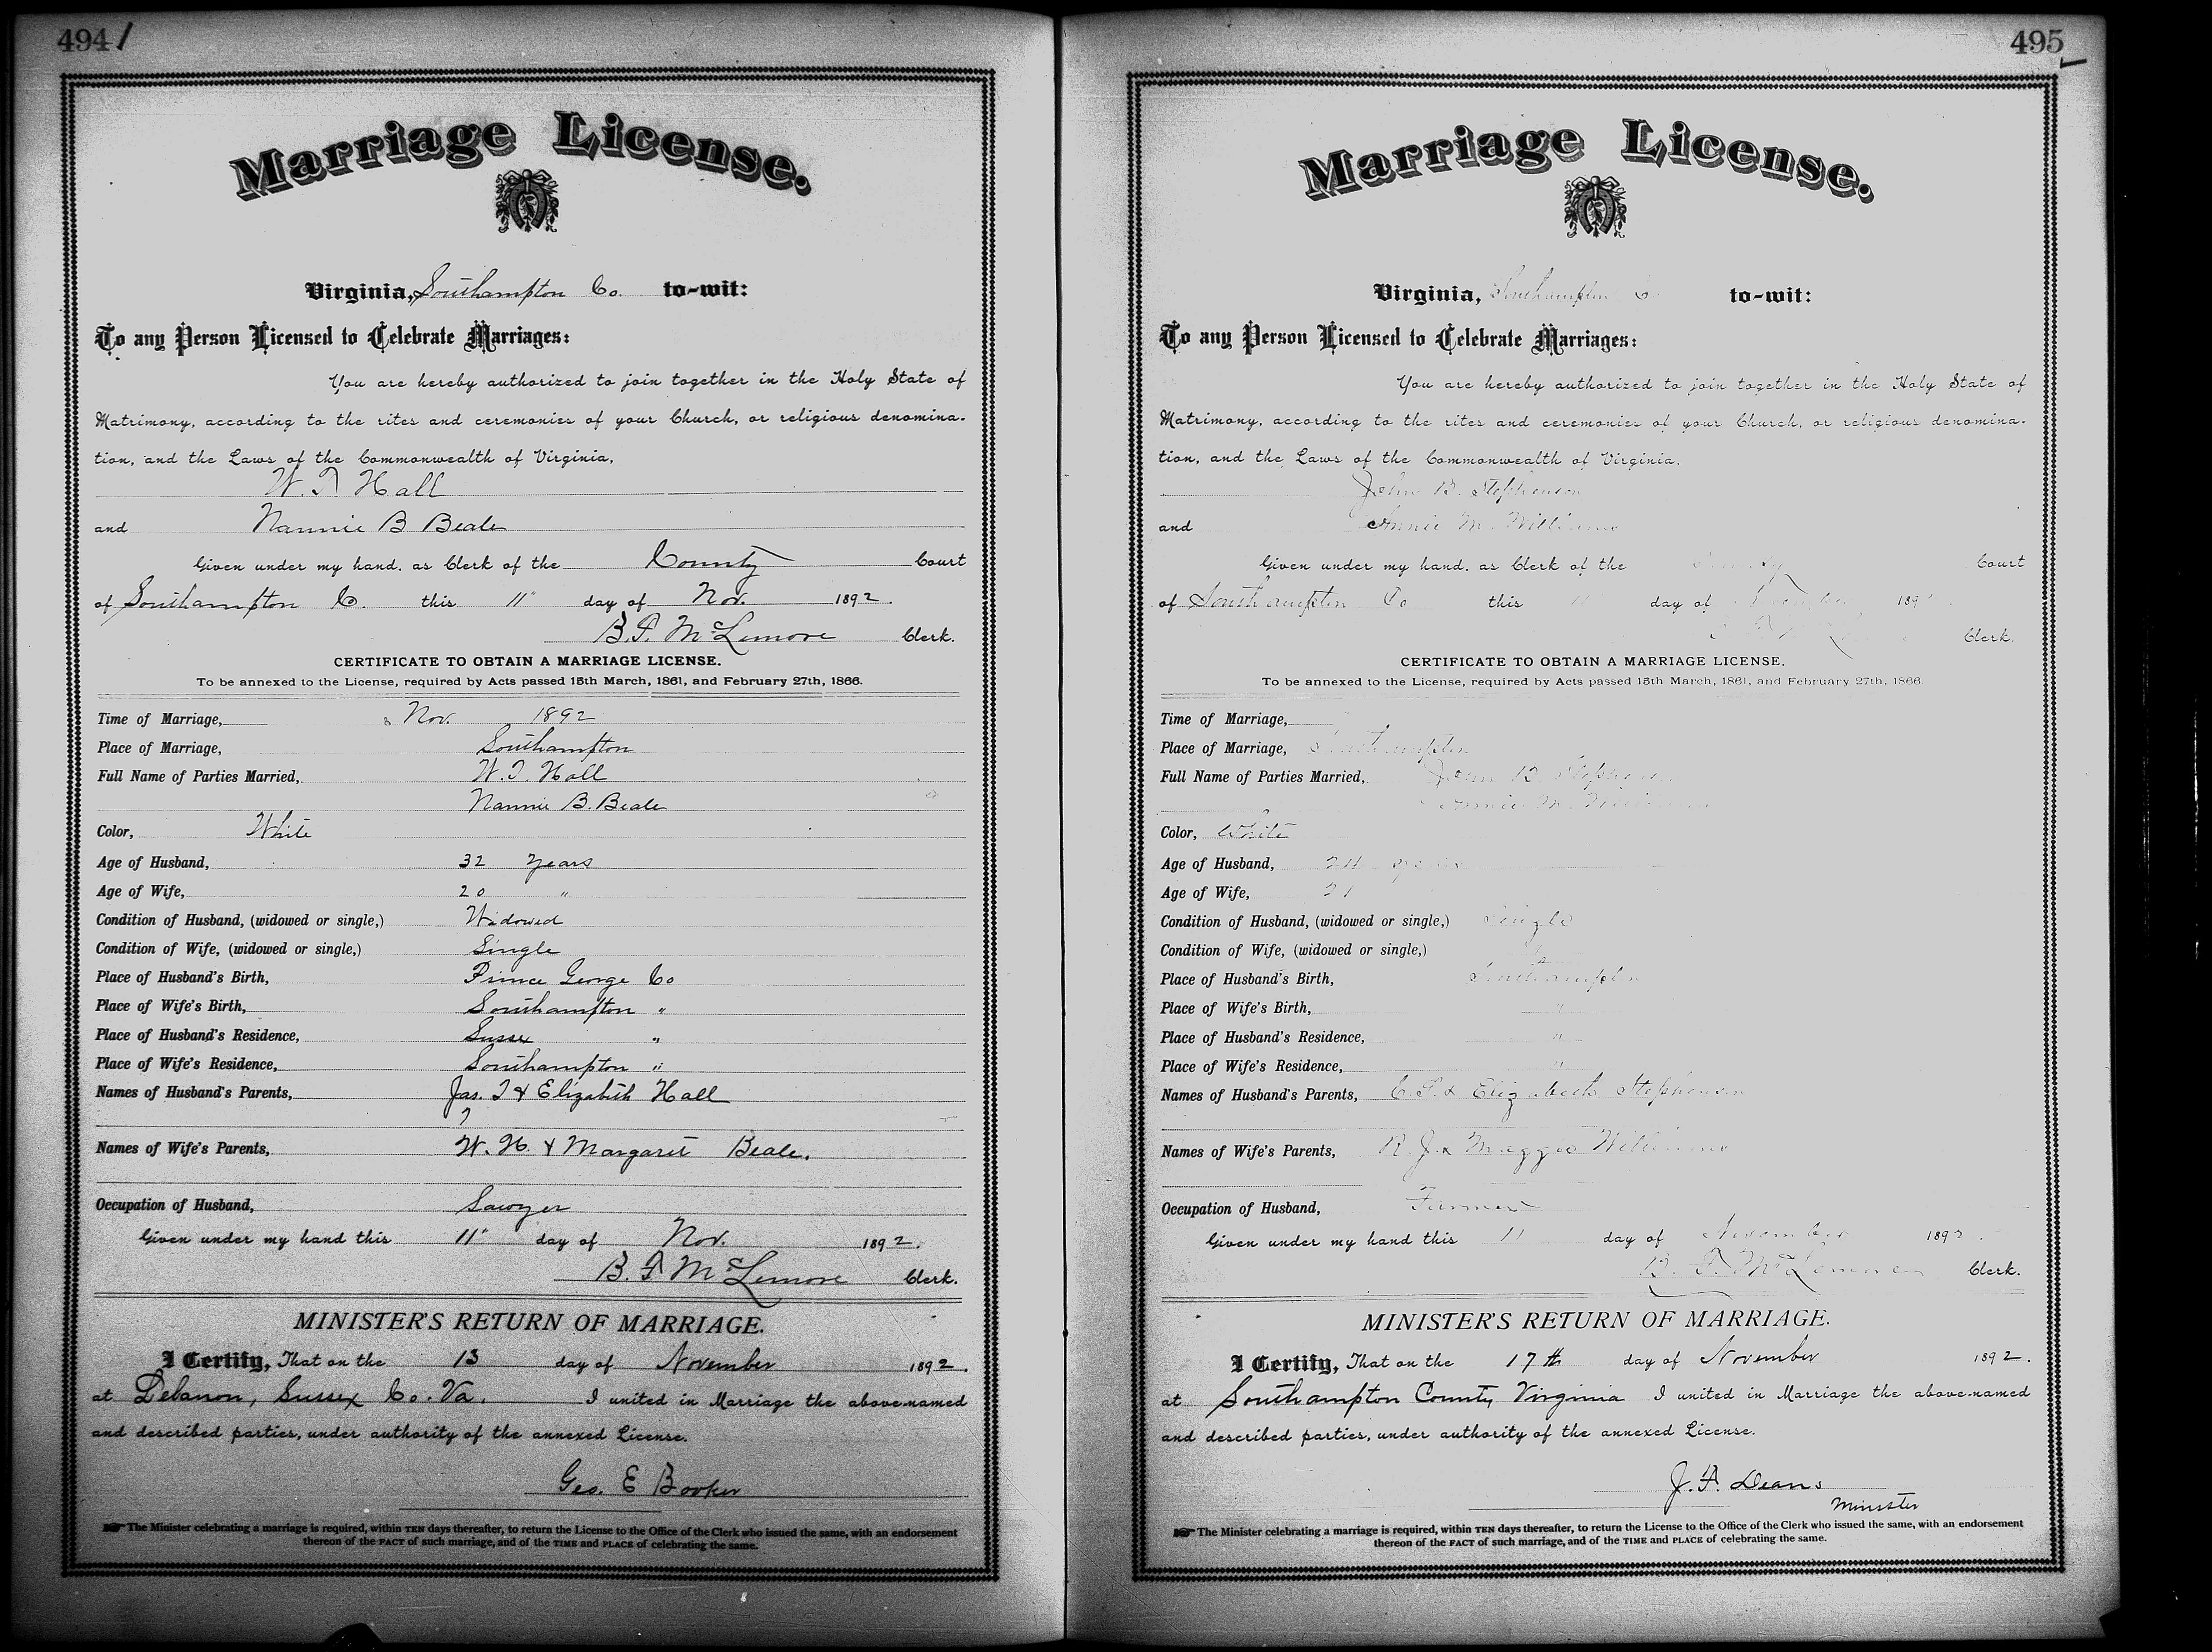 494
Marriage License.
Virginia, Southampton Co. to-wit:
To any Person Licensed to Celebrate Marriages:
You are hereby authorized to join together in the Holy State of
Matrimony, according to the rites and ceremonies of your Church, or religious denomina-
tion, and the Laws of the Commonwealth of Virginia,
W. T Hall
and Nannie B Beale
Given under my hand, as Clerk of the County Court
of Southampton Co. this 11" day of Nov. 1892.
B. F. McLemore Clerk.
CERTIFICATE TO OBTAIN A MARRIAGE LICENSE.
To be annexed to the License, required by Acts passed 15th March, 1861, and February 27th, 1866.
Time of Marriage, Nov. 1892
Place of Marriage, Southampton
Full Name of Parties Married, W. T. Hall
Nannie B. Beale
Color, White
Age of Husband, 32 years
Age of Wife, 20 "
Condition of Husband, (widowed or single,) Widowed
Condition of Wife, (widowed or single,) Single
Place of Husband's Birth, Prince George Co
Place of Wife's Birth, Southampton "
Place of Husband's Residence, Sussex "
Place of Wife's Residence, Southampton "
Names of Husband's Parents, Jas. T & Elizabeth Hall
Names of Wife's Parents, W. H. & Margaret Beale.
Occupation of Husband, Sawyer
Given under my hand this 11" day of Nov. 1892.
B. F. McLemore Clerk.
MINISTER'S RETURN OF MARRIAGE.
I Certify, That on the 13 day of November 1892.
at Lebanon, Sussex Co. Va. I united in Marriage the above-named
and described parties, under authority of the annexed License.
Geo. E Booker
The Minister celebrating a marriage is required, within TEN days thereafter, to return the License to the Office of the Clerk who issued the same, with an endorsement
thereon of the FACT of such marriage, and of the TIME and PLACE of celebrating the same.
495
Marriage License.
Virginia, Southampton Co to-wit:
To any Person Licensed to Celebrate Marriages:
You are hereby authorized to join together in the Holy State of
Matrimony, according to the rites and ceremonies of your Church, or religious denomina-
tion, and the Laws of the Commonwealth of Virginia,
John B. Stephenson
and Annie M. Williams
Given under my hand, as Clerk of the County Court
of Southampton Co this day of November 189
Clerk.
CERTIFICATE TO OBTAIN A MARRIAGE LICENSE.
To be annexed to the License, required by Acts passed 15th March, 1861, and February 27th, 1866.
Time of Marriage,
Place of Marriage, Southampton
Full Name of Parties Married, John B. Stephenson
Annie M. Williams
Color, White
Age of Husband, 24 years
Age of Wife, 21
Condition of Husband, (widowed or single,) Single
Condition of Wife, (widowed or single,) "
Place of Husband's Birth, Southampton
Place of Wife's Birth, "
Place of Husband's Residence, "
Place of Wife's Residence, "
Names of Husband's Parents, & Elizabeth Stephenson
Names of Wife's Parents, R. J. & Maggie Williams
Occupation of Husband, Farmer
Given under my hand this 11 day of November 1892.
B. F. McLemore Clerk.
MINISTER'S RETURN OF MARRIAGE.
I Certify, That on the 17th day of November 1892.
at Southampton County Virginia I united in Marriage the above-named
and described parties, under authority of the annexed License.
J. F. Deans
Minister
The Minister celebrating a marriage is required, within TEN days thereafter, to return the License to the Office of the Clerk who issued the same, with an endorsement
thereon of the FACT of such marriage, and of the TIME and PLACE of celebrating the same.